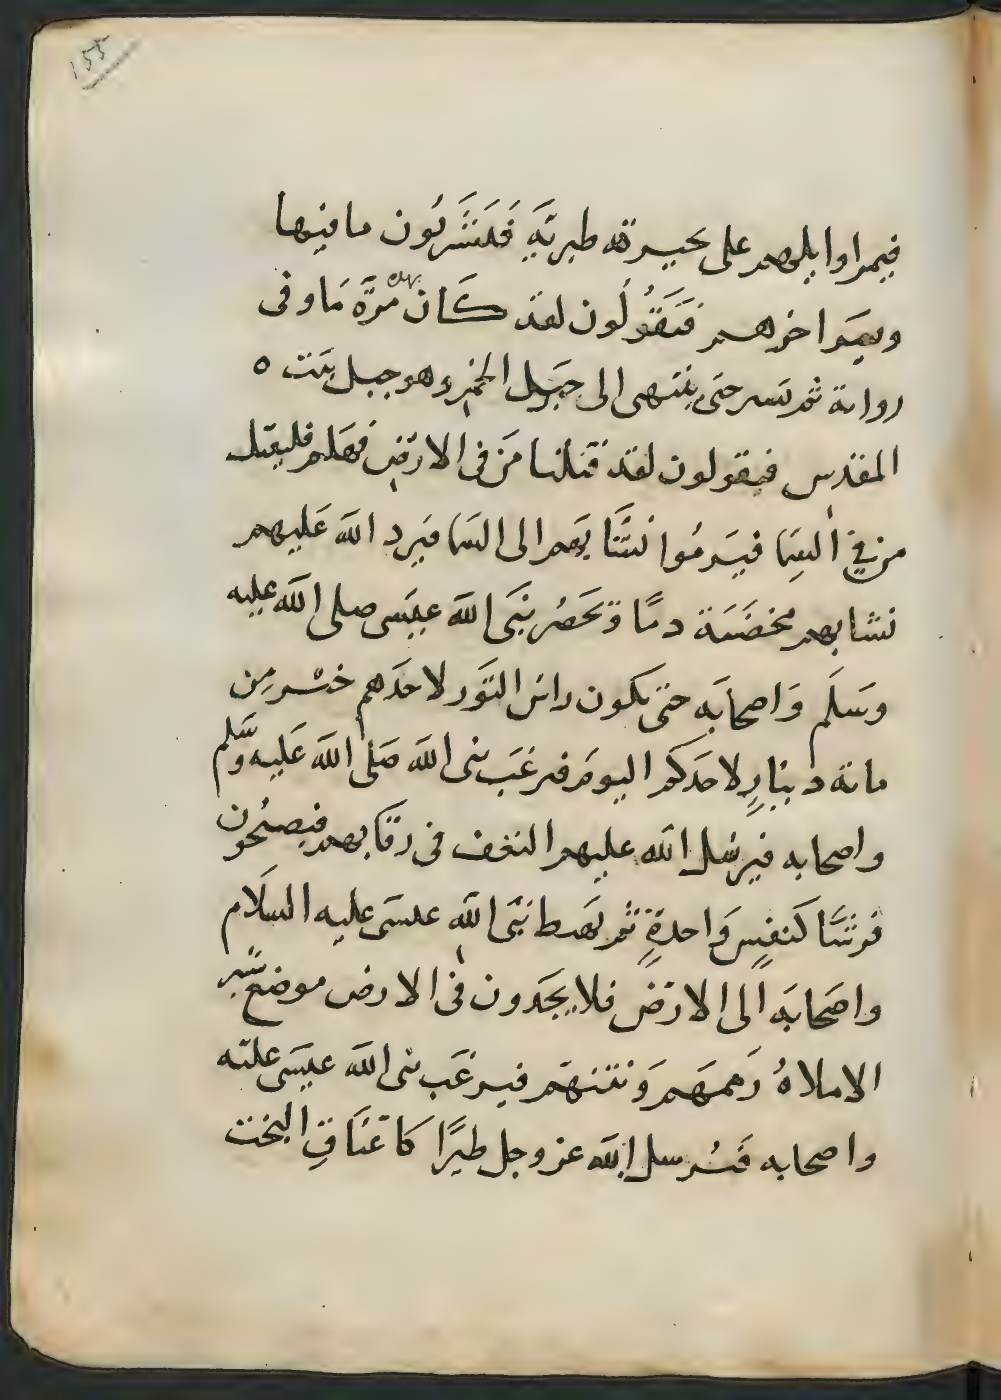 155
فيمر اوايلهم على بحيرة طبرية فيشربون ما فيها
ويمر اخرهم فيقولون لقد كان بهذه مرة ما وفى
رواية ثم تسير حتى ينتهى الى جبل الخمر وهو جبل بيت ٥
المقدس فيقولون لقد قتلنا من فى الارض فهلم فليقتل
من في السما فيرموا نشابهم الى السما فيرد الله عليهم
نشابهم مخضبة دما وتحصر نبى الله عيسى صلى الله عليه
وسلم واصحابه حتى يكون راس الثور لاحدهم خير من
مائة دينار لاحدكم اليوم فيرغب نبى الله صلى الله عليه وسلم
واصحابه فيرسل الله عليهم النغف فى رقابهم فيصبحون
فرسا كنفس واحدة ثم يهبط نبى الله عيسى عليه السلام
واصحابه الى الارض فلا يجدون فى الارض موضع شبر
الا ملاه زهمهم ونتنهم فيرغب نبى الله عيسى عليه
واصحابه فيرسل الله عز وجل طيرا كاعناق البخت